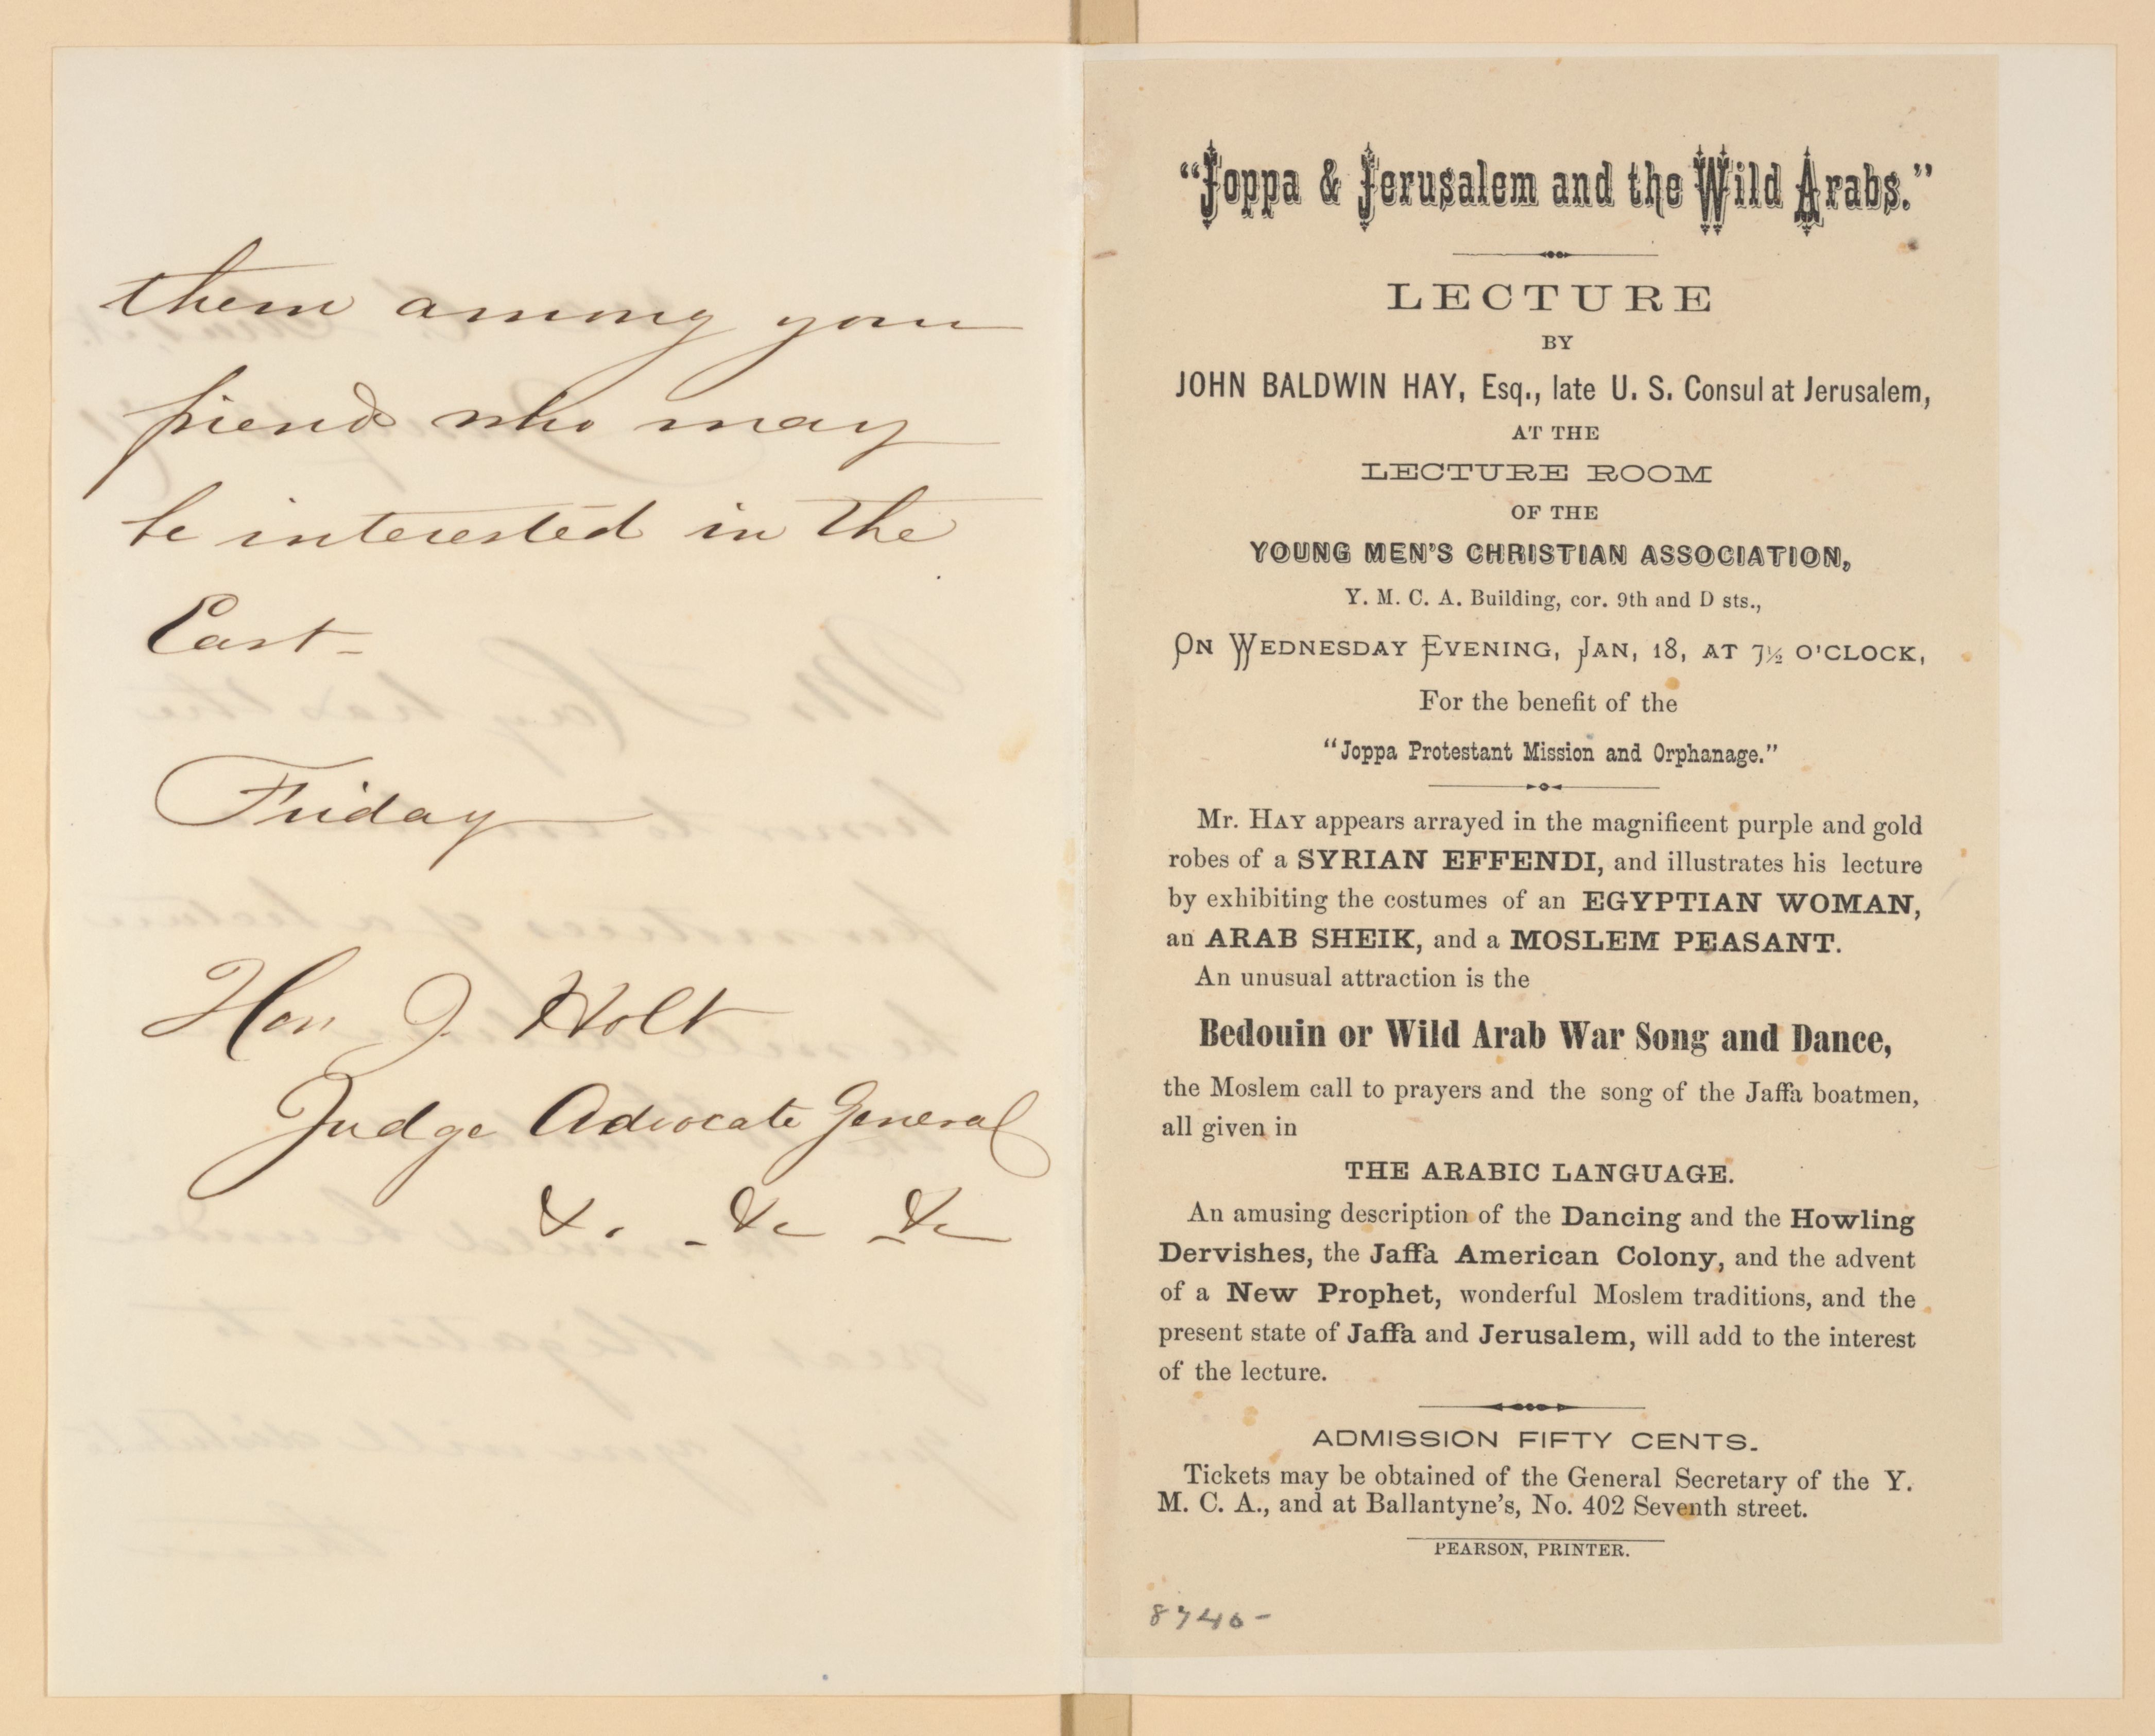 them among your
friends who may
be interested in the
East -
Friday
Hon J. Holt
Judge Advocate General
&. - &c &c
"Joppa & Jerusalem and the Wild Arabs."
LECTURE
BY
JOHN BALDWIN HAY, Esq., late U. S. Consul at Jerusalem,
AT THE
LECTURE ROOM
OF THE
YOUNG MEN'S CHRISTIAN ASSOCIATION,
Y. M. C. A. Building, cor. 9th and D sts.,
ON WEDNESDAY EVENING, JAN, 18, AT 7½ O'CLOCK,
For the benefit of the
"Joppa Protestant Mission and Orphanage."
Mr. HAY appears arrayed in the magnificent purple and gold
robes of a SYRIAN EFFENDI, and illustrates his lecture
by exhibiting the costumes of an EGYPTIAN WOMAN,
an ARAB SHEIK, and a MOSLEM PEASANT.
An unusual attraction is the
Bedouin or Wild Arab War Song and Dance,
the Moslem call to prayers and the song of the Jaffa boatmen,
all given in
THE ARABIC LANGUAGE.
An amusing description of the Dancing and the Howling
Dervishes, the Jaffa American Colony, and the advent
of a New Prophet, wonderful Moslem traditions, and the
present state of Jaffa and Jerusalem, will add to the interest
of the lecture.
ADMISSION FIFTY CENTS.
Tickets may be obtained of the General Secretary of the Y.
M. C. A., and at Ballantyne's, No. 402 Seventh street.
PEARSON, PRINTER.
8746-